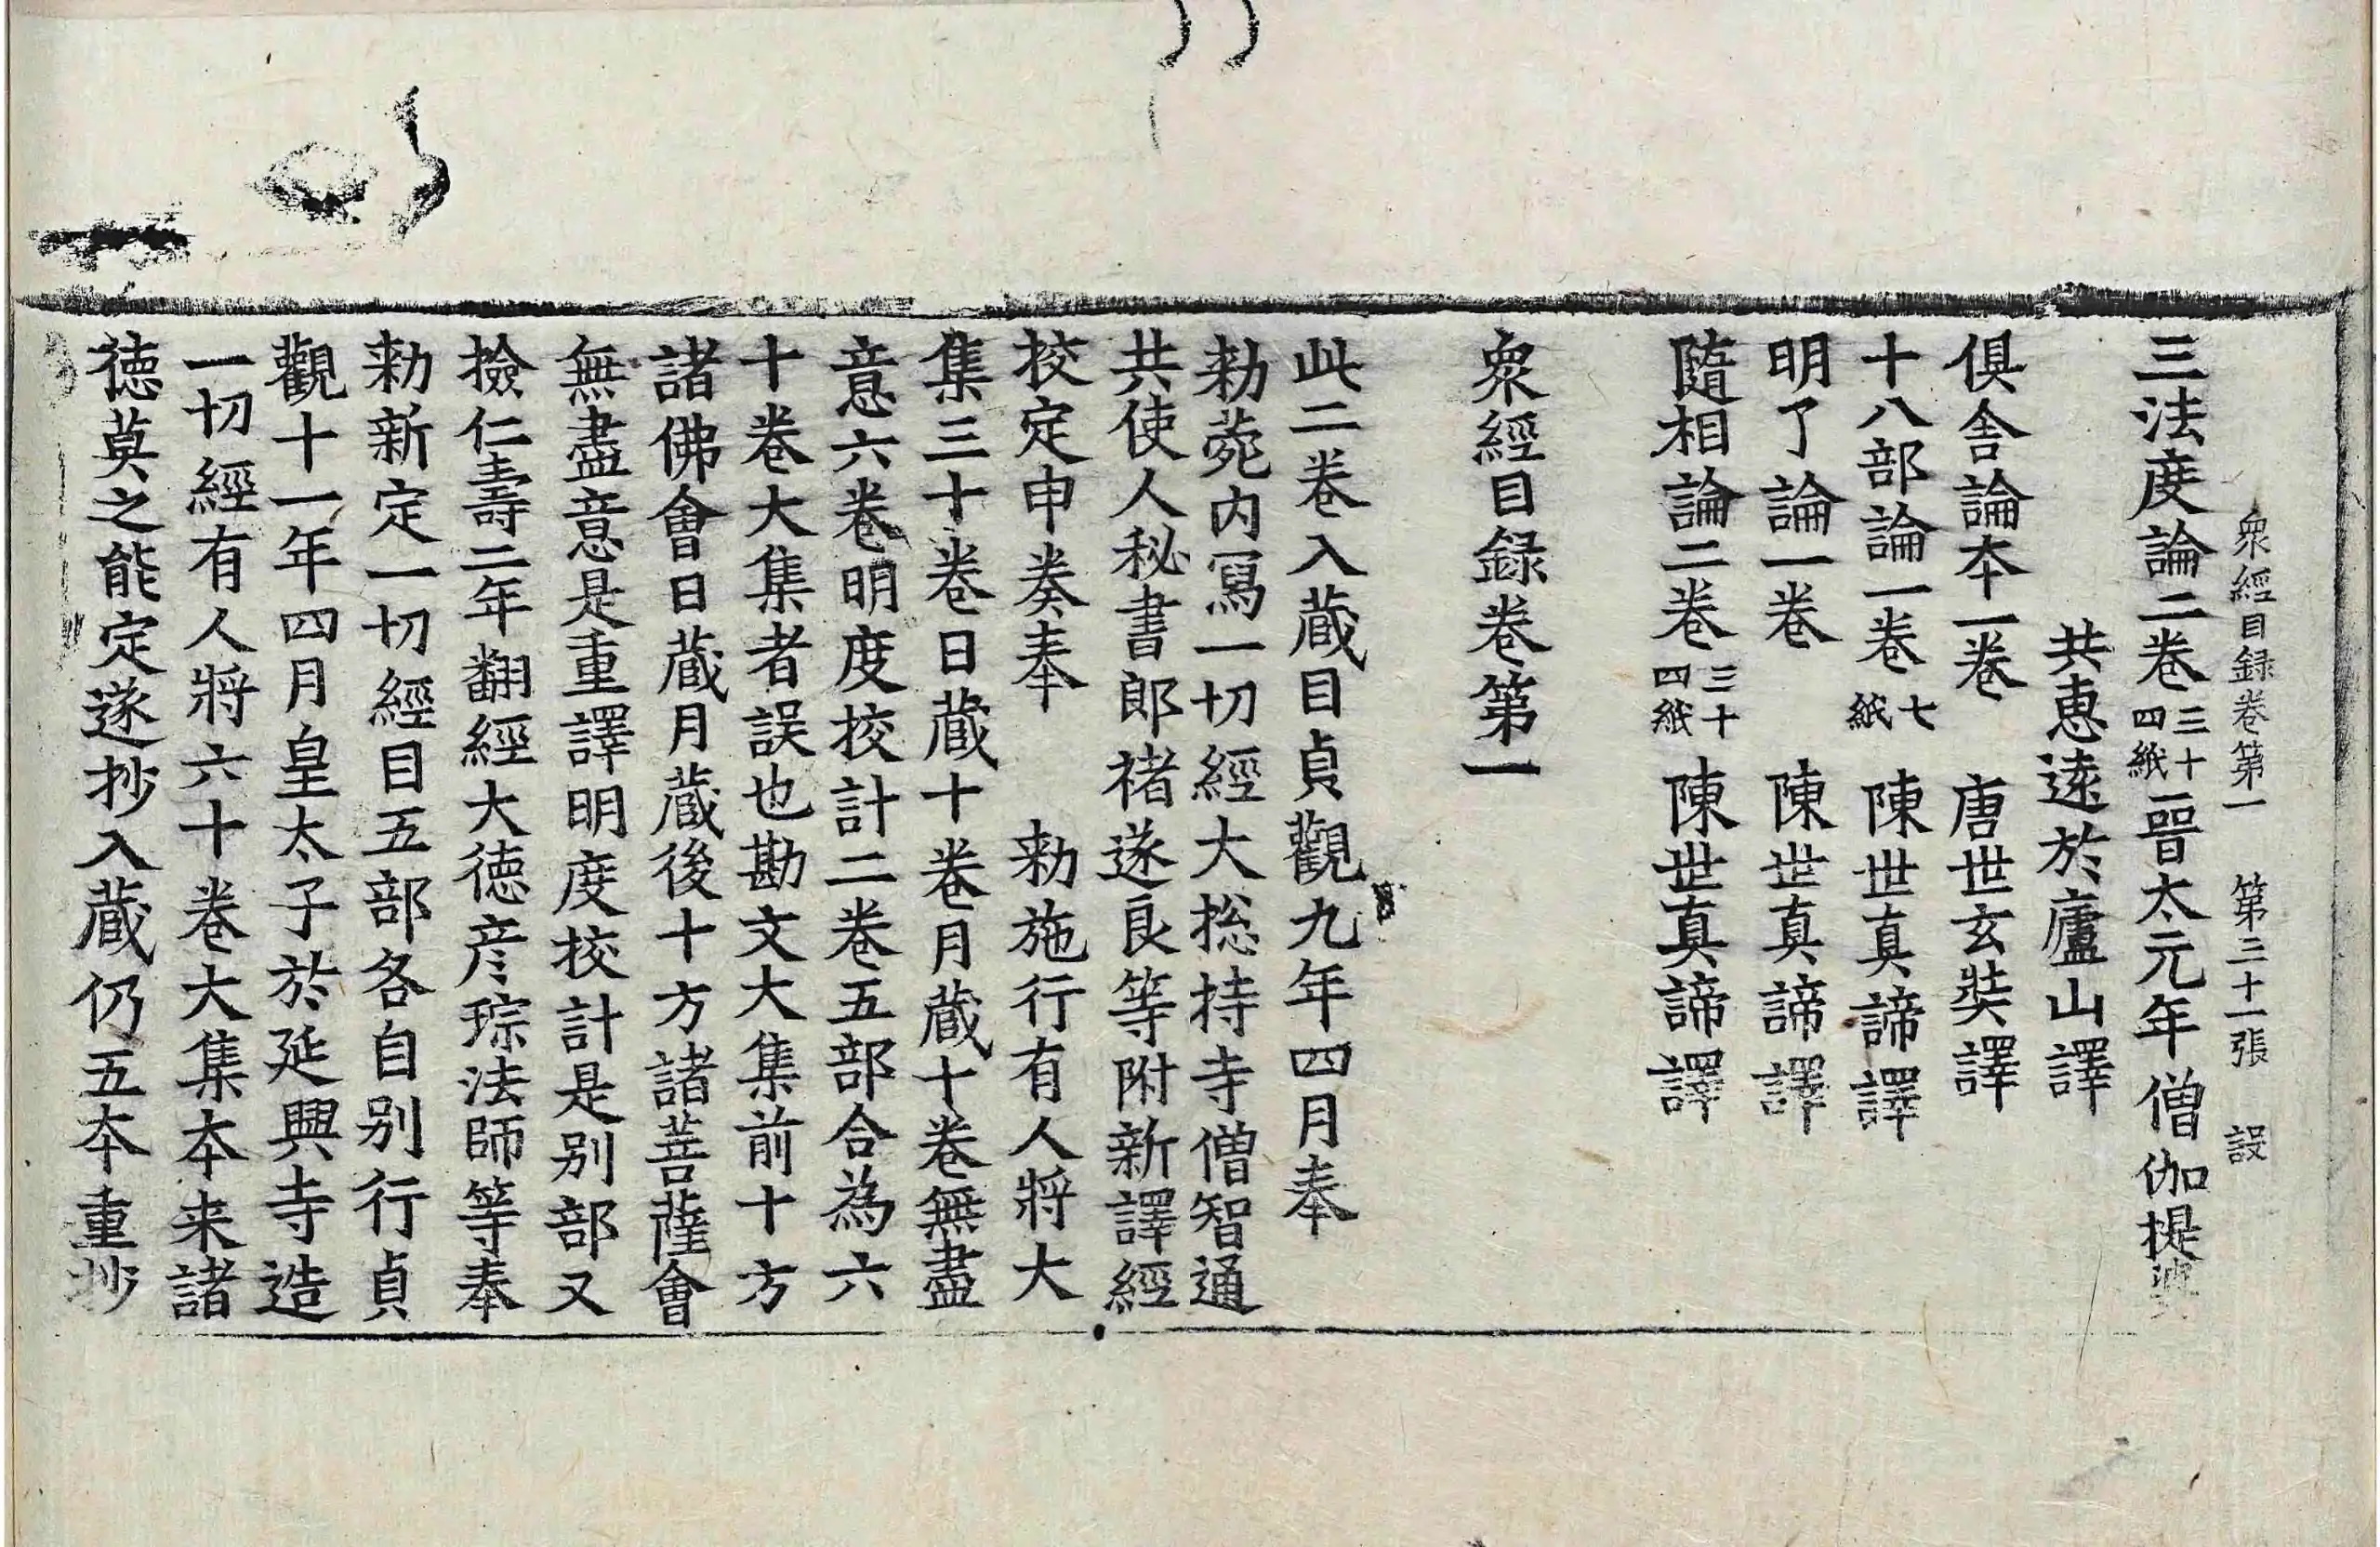 衆經目録卷第一　第三十一張　設
三法度論二卷三十四紙晉太元年僧伽提婆
共恵逺於廬山譯
俱舍論夲一卷　唐世玄奘譯
十八部論一卷七紙　陳世真諦譯
明了論一卷　陳世真諦譯
隨相論二卷三十四紙　陳世真諦譯
衆經目録卷第一
此二卷入蔵目貞觀九年四月奉
勑菀内寫一切經大捴持寺僧智通
共使人秘書郎褚遂良等附新譯經
挍定申奏奉　勑施行有人將大
集三十卷日蔵十卷月蔵十卷無盡
意六卷明度挍計二卷五部合為六
十卷大集者誤也勘文大集前十方
諸佛會日蔵月蔵後十方諸菩薩會
無盡意是重譯明度挍計是别部又
撿仁壽二年翻經大徳彦琮法師等奉
勑新定一切經目五部各自别行貞
觀十一年四月皇太子於延興寺造
一切經有人將六十卷大集夲来諸
徳莫之能定遂抄入蔵仍五夲重抄